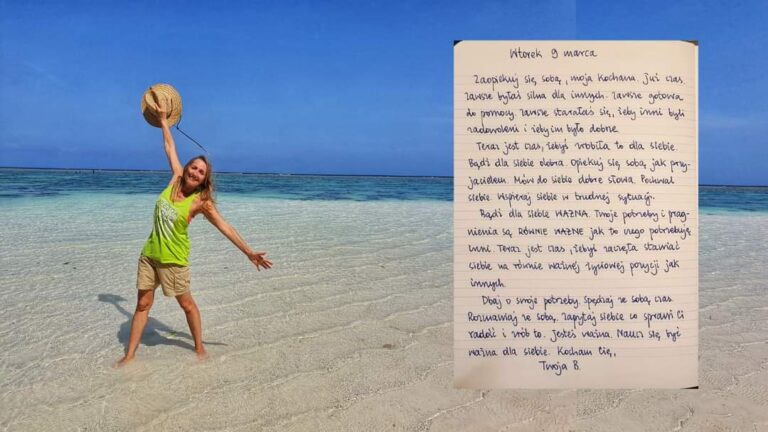 Wtorek 9 marca
Zaopiekuj się sobą, moja kochana. Już czas.
Zawsze byłaś silna dla innych. Zawsze gotowa
do pomocy. Zawsze starałaś się, żeby inni byli
zadowoleni i żeby im było dobrze.
Teraz jest czas, żebyś zrobiła to dla siebie.
Bądź dla siebie dobra. Opiekuj się sobą, jak przy-
jacielem. Mów do siebie dobre słowa. Pochwal
siebie. Wspieraj siebie w trudnej sytuacji.
Bądź dla siebie WAŻNA. Twoje potrzeby i prag-
nienia są RÓWNIE WAŻNE jak to czego potrzebują
inni. Teraz jest czas, żebyś zaczęła stawiać
siebie na równie ważnej życiowej pozycji jak
innych.
Dbaj o swoje potrzeby. Spędzaj ze sobą czas.
Rozmawiaj ze sobą. Zapytaj siebie co sprawi Ci
radość i zrób to. Jesteś ważna. Naucz się być
ważna dla siebie. Kocham Cię,
Twoja B.